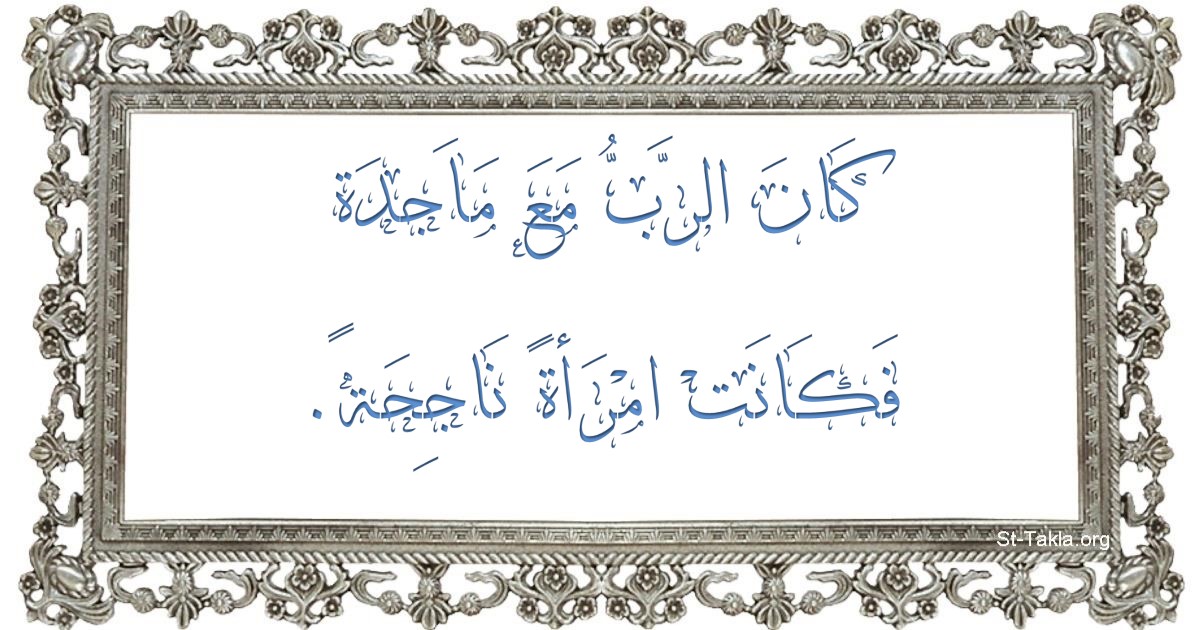 كَانَ الرَّبُّ مَعَ مَاَجِدَة
فَكَانَت امْرَأةً نَاجِحَةً.
St-Takla.org